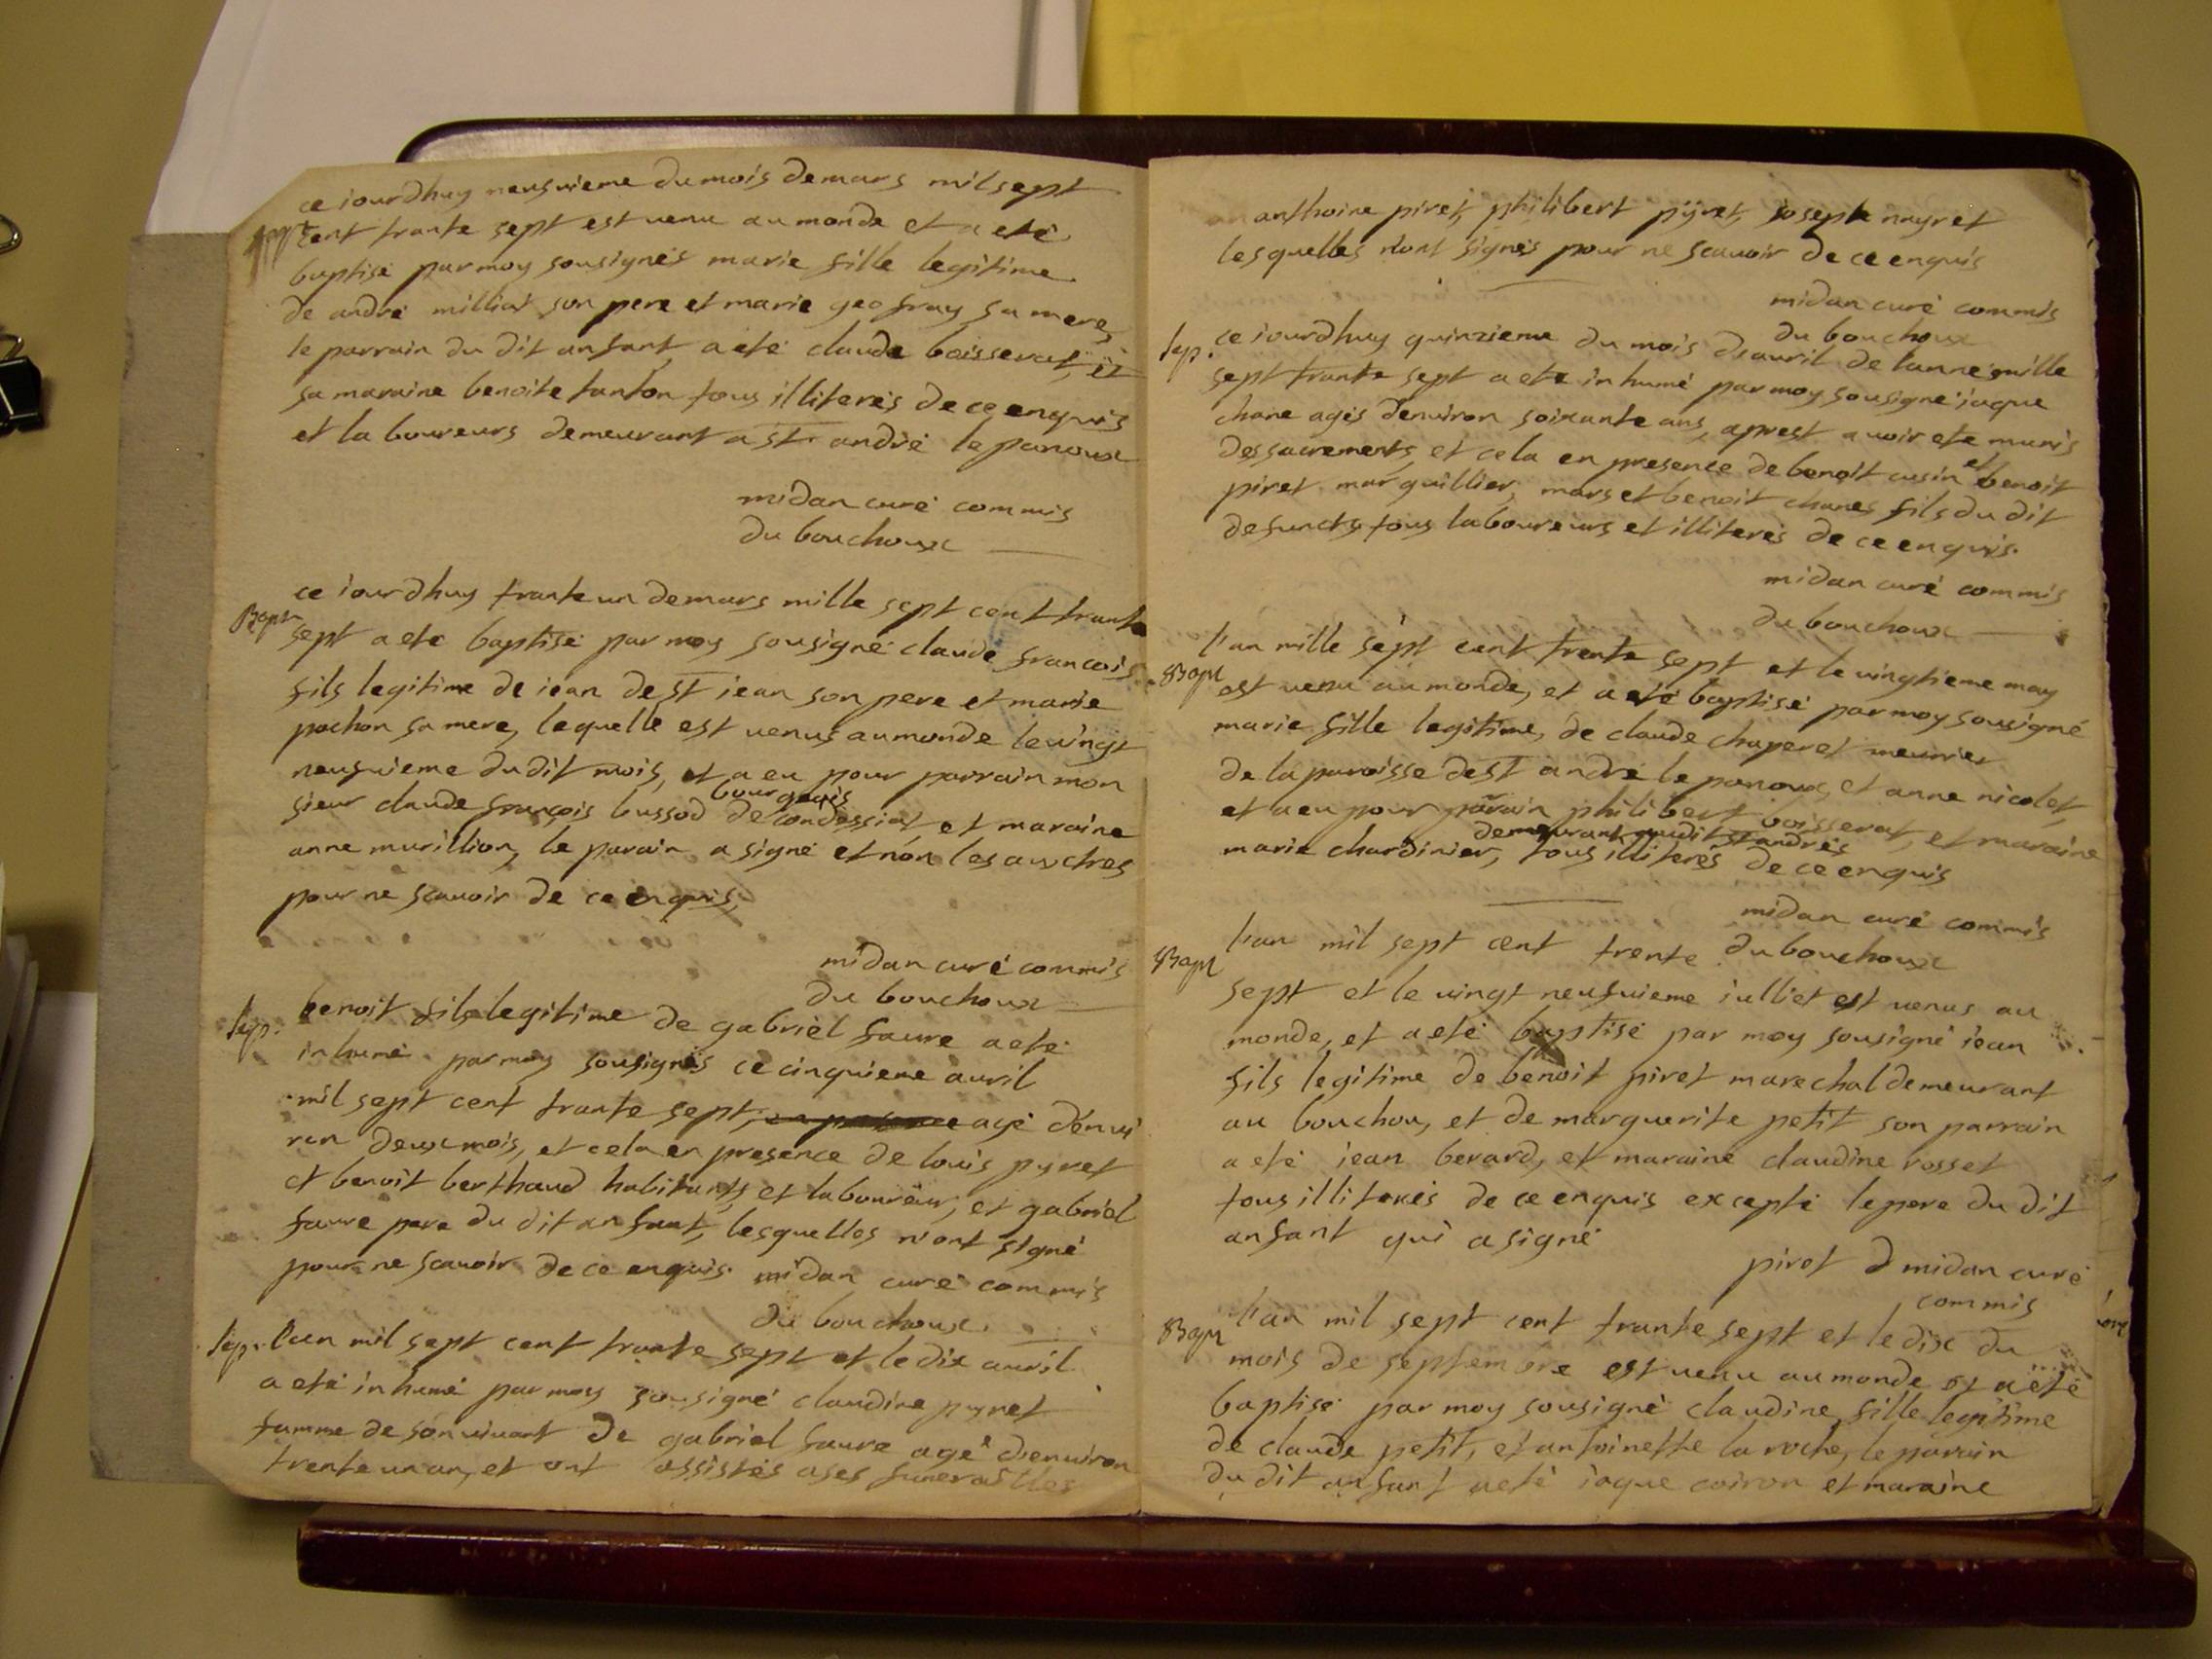 ce iourdhuy neufuieme du mois de mars mil sept
bapt cent trante sept est uenu au monde et a eté
baptisé par moy sousignés marie fille legitime
de andré milliat son pere et marie geofray sa mere,
le parrain du dit anfant a eté claude boisserat, et
sa maraine benoite tanton tous illiterés de ce enquis
et laboureurs demeurant a st andré le panoux
midan curé commis
du bouchoux
ce iourdhuy trante un de mars mille sept cent trante
Bapt sept a eté baptisé par moy sousigné claude francois
fils legitime de iean de st iean son pere et marie
pochon sa mere, lequelle est uenus au monde le uingt
neufuieme du dit mois, et a eu pour parrain mon
bourgeois
sieur claude françois bussod de condessiat, et maraine
anne murillion, le parain a signé et non les auxtres
pour ne scauoir de ce enquis,
midan curé commis
du bouchoux
sep. benoit fils legitime de gabriel faure a eté
inhumé par moy sousignés ce cinquieme auril
mil sept cent trante sept, en presence agé d'enui
ron deux mois, et cela en presence de louis pyret
et benoit berthaud habitants et laboureur, et gabriel
faure pere du dit anfant, lesquelles n'ont signé
pour ne scauoir de ce enquis. midan curé commis
du bouchoux.
sep. l'an mil sept cent trante sept et le dix auril
a eté inhumé par moy sousigné claudine pyret
famme de son uiuant de gabriel faure agé d'enuiron
trente un an, et ont assistés a ses funerailles
anthoine piret, philibert pyret, ioseph nayret
lesquelles n'ont signés pour ne scauoir de ce enquis
midan curé commis
du bouchoux
sep. ce iourdhuy quinzieme du mois d'auril de l'anné mille
sept trante sept a eté inhumé par moy sousigné iaque
chane agés d'enuiron soixante ans, aprest auoir eté munis
des sacrements, et cela en presence de benoit cusin et benoit
piret marguillier, mars et benoit chanes fils du dit
defuncts tous laboureurs et illiterés de ce enquis.
midan curé commis
du bouchoux
l'an mille sept cent trente sept et le uingtieme may
Bapt est uenu au monde, et a eté baptisé par moy sousigné
marie fille legitime, de claude chaperet meunier
de la paroisse de st andré le panoux, et anne nicolet,
et a eu pour parain philibert boisserat, et maraine
demeurant audit st andrés
marie chardinier, tous illiterés de ce enquis
midan curé commis
du bouchoux
Bapt l'an mil sept cent trente
sept et le uingt neufuieme iulliet est uenus au
monde, et a eté baptisé par moy sousigné iean
fils legitime de benoit piret marechal demeurant
au bouchou, et de marguerite petit son parrain
a eté iean berard, et maraine claudine rosset
tous illiterés de ce enquis excepté le pere du dit
anfant qui a signé
piret D midan curé
commis
Bapt l'an mil sept cent trante sept et le dix du
mois de septembre est uenu au monde et a eté
baptisé par moy sousigné claudine fille legitime
de claude petit, et antoinette la roche, le parain
du dit anfant a eté iaque coiron et maraine